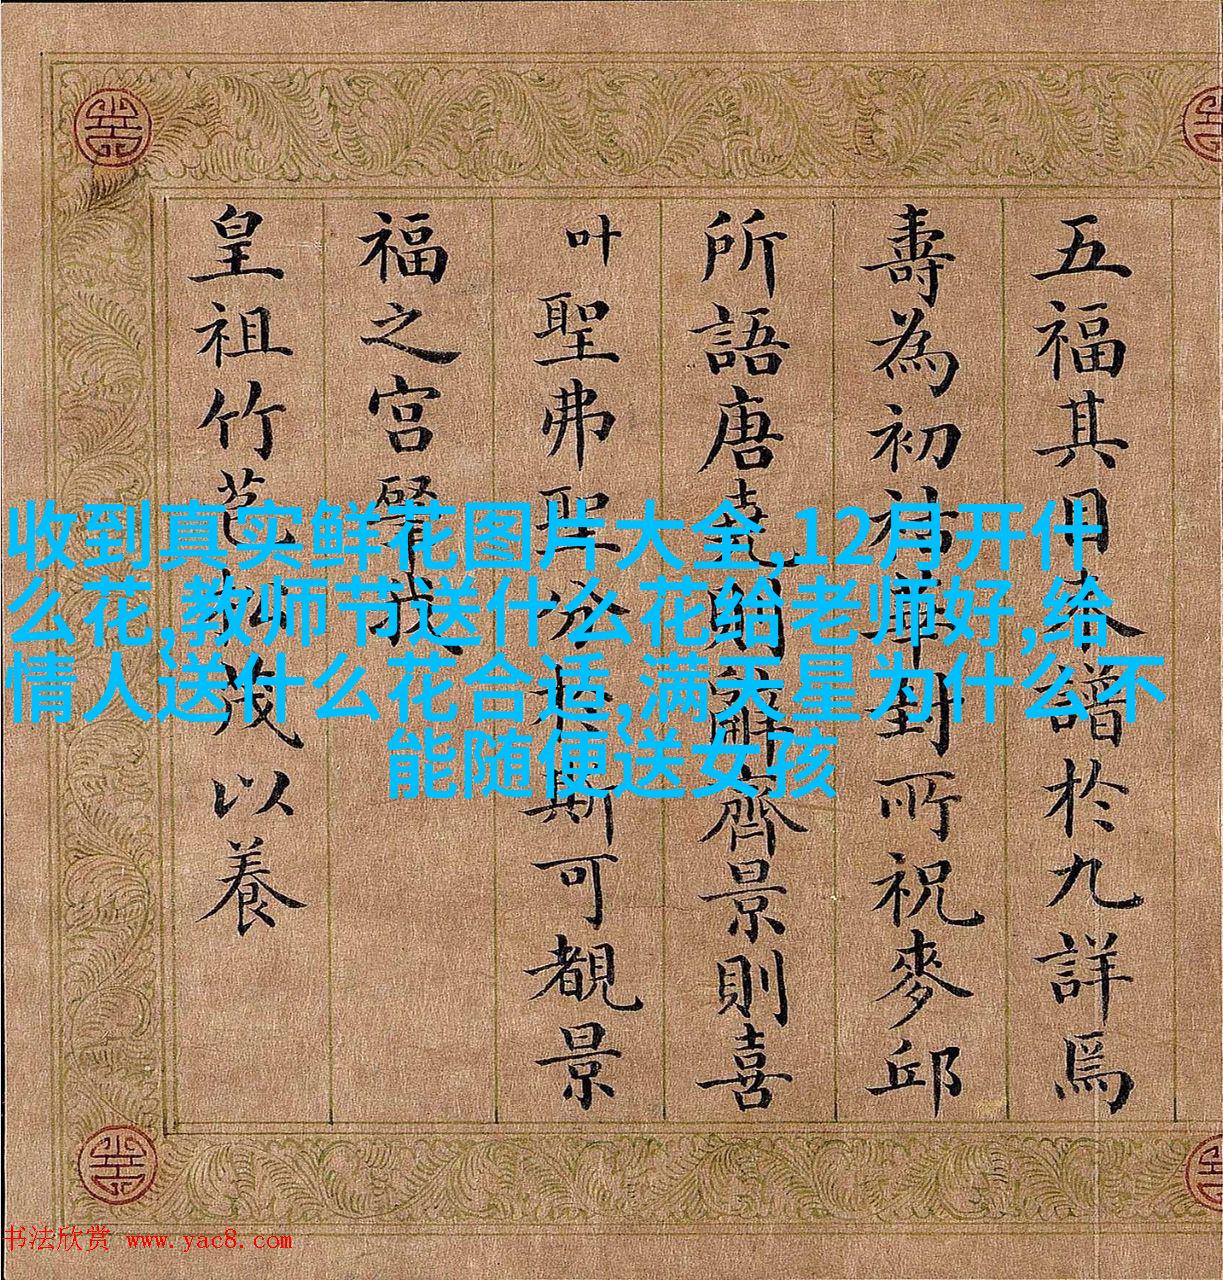 五福其用本諸於九詳焉
壽為初祜華封所祝麥邱
所語唐堯則辭齊景則喜
叶聖弗聖分於斯可覩景
福之宮肇我
皇祖竹苞松茂以養
收到真实鲜花图片大全,12月开什
么花,教师节送什么花给老师好,给
情人送什么花合适,满天星为什么不
能随便送女孩
书法欣赏 www.yac8.com